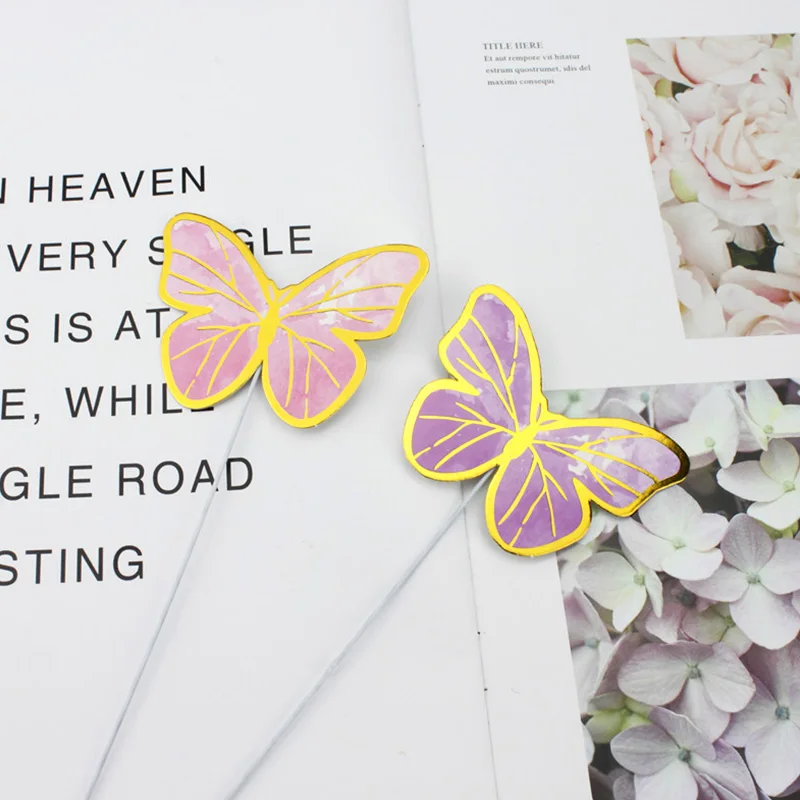 HEAVEN
VERY
S IS AT
E, WHILE
GLE ROAD
STING
TITLE HERE
Et aut tempore vit hitatur
estrum quostrumet, idis del
maximi consequi